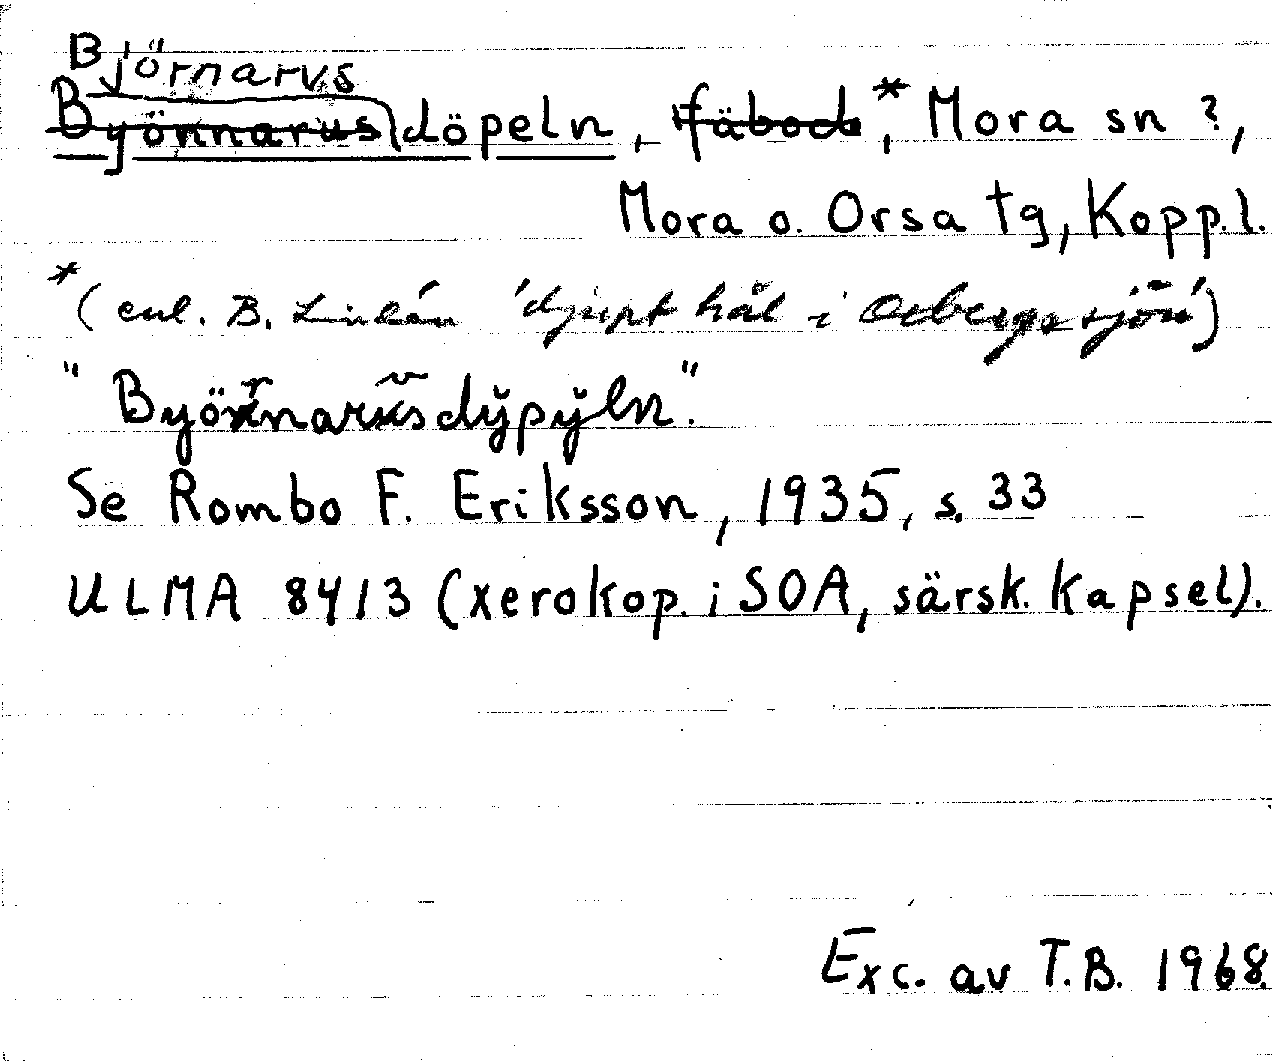 Björnarvs
Byönnarusdöpeln, fäbod*, Mora sn?,
Mora o. Orsa tg, Kopp.l.
*(enl. B. Lindén 'djupt hål i Orbergssjön')
"Byörnarvsdÿpÿln."
Se Rombo F. Eriksson, 1935, s. 33
ULMA 8413 (xerokop. i SOA, särsk. kapsel).
Exc. av T.B. 1968.